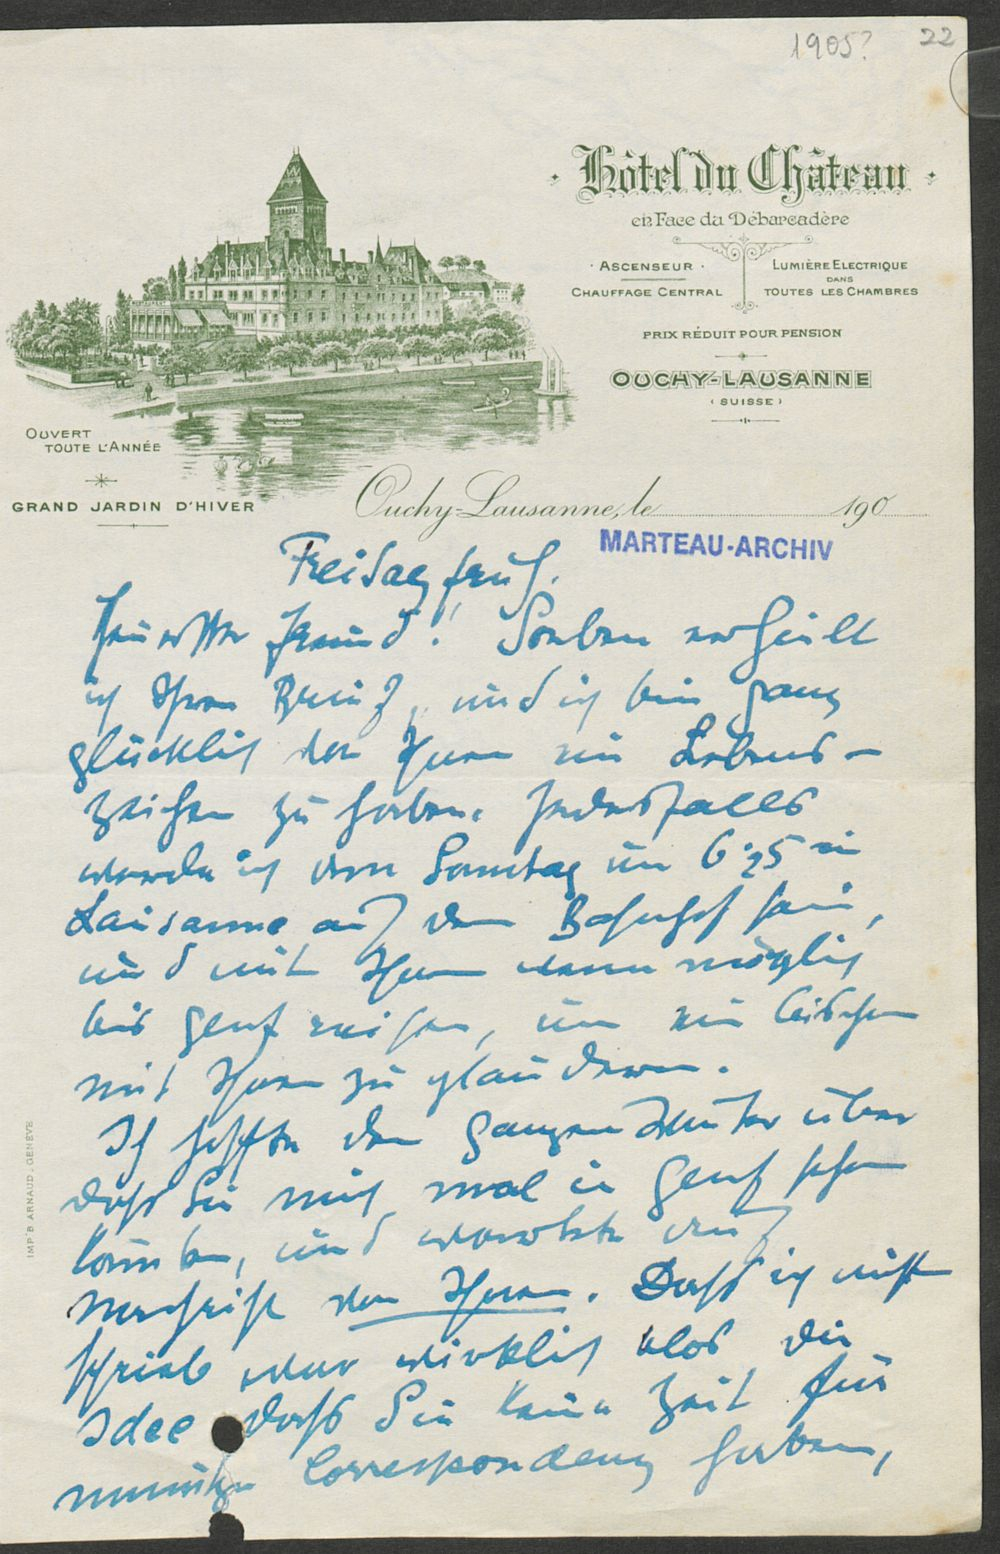 1905?
22
Hôtel du Château
en Face du Débarcadère
ASCENSEUR
CHAUFFAGE CENTRAL
LUMIÈRE ELECTRIQUE
DANS
TOUTES LES CHAMBRES
PRIX RÉDUIT POUR PENSION
OUCHY-LAUSANNE
(SUISSE)
OUVERT
TOUTE L'ANNÉE
GRAND JARDIN D'HIVER
Ouchy-Lausanne, le 190
MARTEAU-ARCHIV
Freitag früh.
Teuerster Freund! Soeben erhielt
ich Ihren Brief, und ich bin ganz
glücklich von Ihnen ein Lebens-
zeichen zu haben. Jedesfalls
werde ich am Samstag um 6.25 in
Lausanne auf dem Bahnhof sein,
und mit Ihnen wenn möglich
bis Genf reisen, um ein bischen
mit Ihnen zu plaudern.
Ich hoffte den ganzen Winter über
dass Sie mich mal in Genf sehen
könnten, und wartete auf
Nachricht von Ihnen. Dass ich nicht
schrieb war wirklich blos die
Idee dass Sie keine Zeit für
unnütze Correspondenz haben,
IMP. B. ARNAUD. GENÈVE